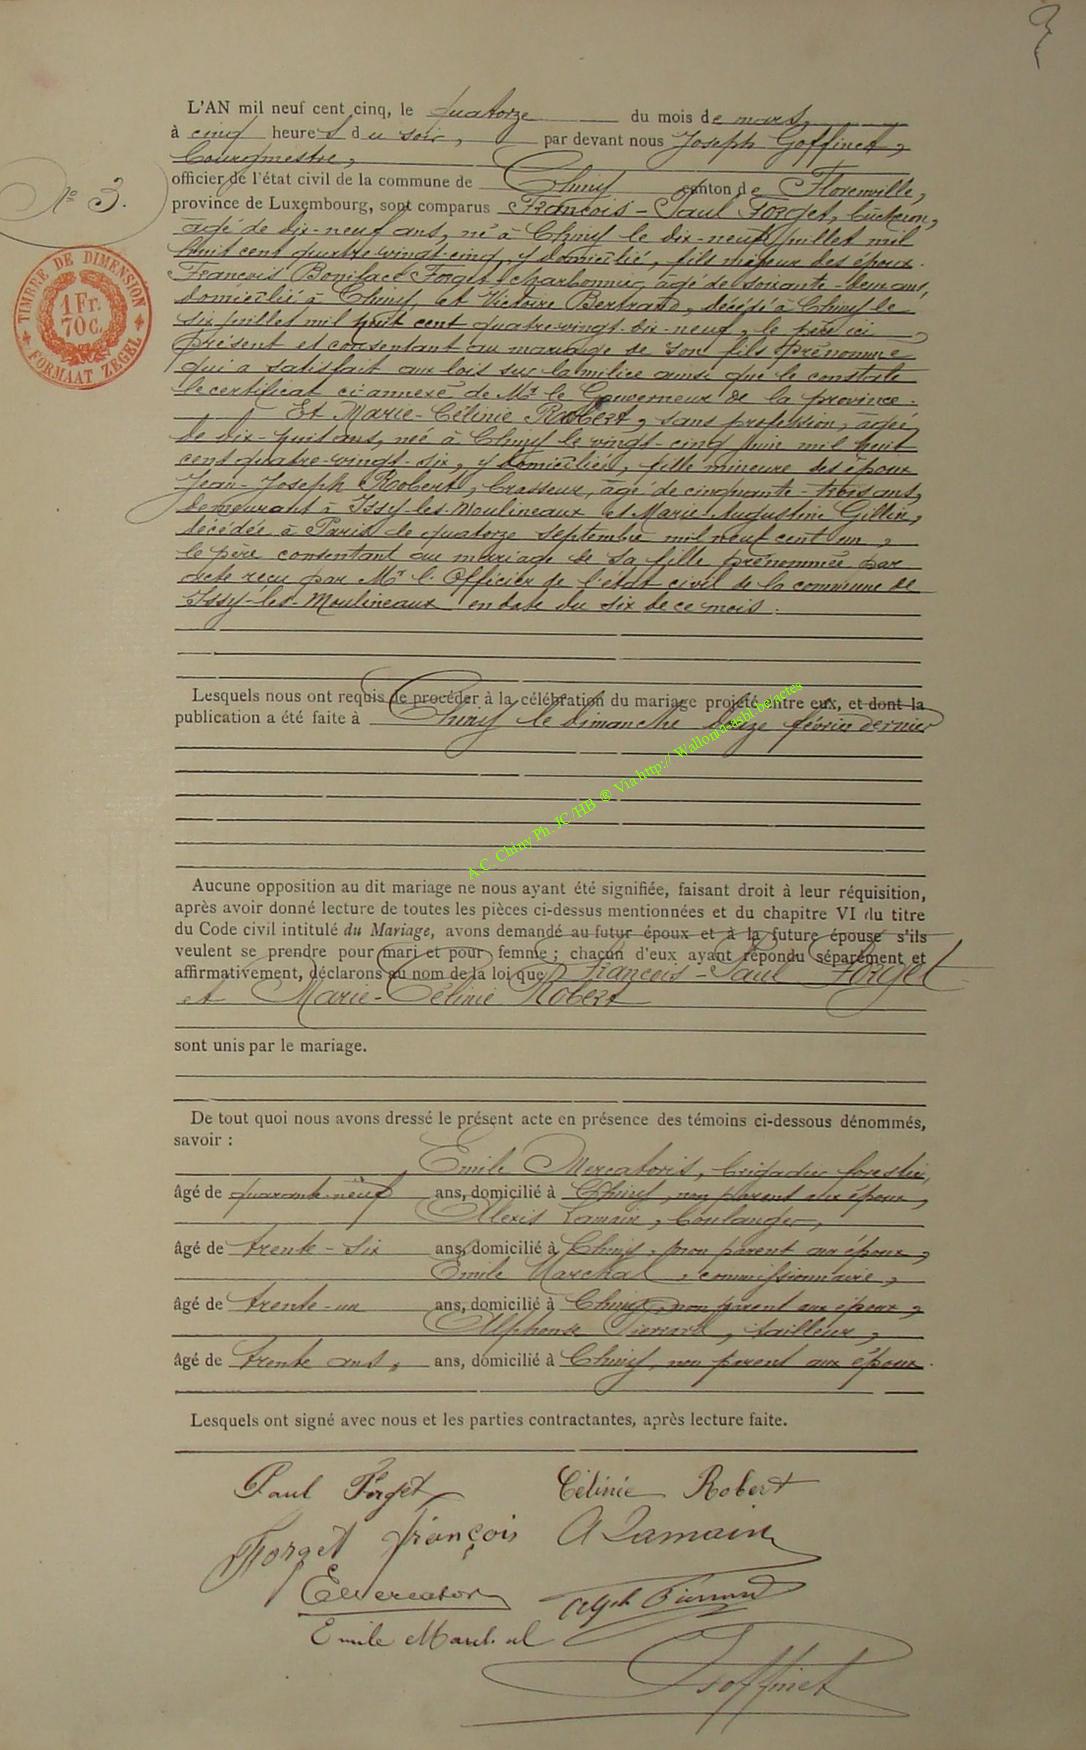 L'AN mil neuf cent cinq, le quatorze du mois de mars,
à cinq heures du soir, par devant nous Joseph Goffinet,
bourgmestre,
officier de l'état civil de la commune de Chiny canton de Florenville,
N° 3.
province de Luxembourg, sont comparus François-Paul Forget, bûcheron,
âgé de dix-neuf ans, né à Chiny le dix-neuf juillet mil
huit cent quatre-vingt-cinq, y domicilié, fils mineur des époux
François Boniface Forget, charbonnier, âgé de soixante-deux ans,
domicilié à Chiny, et Victoire Bertrand, décédée à Chiny le
six juillet mil huit cent quatre-vingt-dix-neuf, le père ici
présent et consentant au mariage de son fils prénommé
qui a satisfait aux lois sur la milice ainsi que le constate
le certificat ci-annexé de Mr le Gouverneur de la province.
Et Marie-Célinie Robert, sans profession, âgée
de dix-huit ans, née à Chiny le vingt-cinq juin mil huit
cent quatre-vingt-six, y domiciliée, fille mineure des époux
Jean-Joseph Robert, brasseur, âgé de cinquante-trois ans,
demeurant à Issy-les-Moulineaux et Marie Augustine Gillin,
décédée à Paris le quatorze septembre mil neuf cent un,
le père consentant au mariage de sa fille prénommée par
acte reçu par Mr l'Officier de l'état civil de la commune de
Issy-les-Moulineaux en date du six de ce mois.
TIMBRE DE DIMENSION
1 Fr.
70 c.
FORMAAT ZEGEL
Lesquels nous ont requis de procéder à la célébration du mariage projeté entre eux, et dont la
publication a été faite à Chiny le dimanche février dernier
A.C. Chiny Ph. JC/HB ® Via http://Wallonia-asbl.be/actes
Aucune opposition au dit mariage ne nous ayant été signifiée, faisant droit à leur réquisition,
après avoir donné lecture de toutes les pièces ci-dessus mentionnées et du chapitre VI du titre
du Code civil intitulé du Mariage, avons demandé au futur époux et à la future épouse s'ils
veulent se prendre pour mari et pour femme ; chacun d'eux ayant répondu séparément et
affirmativement, déclarons au nom de la loi que François-Paul Forget
et Marie-Célinie Robert
sont unis par le mariage.
De tout quoi nous avons dressé le présent acte en présence des témoins ci-dessous dénommés,
savoir :
Emile Mercatoris, brigadier forestier,
âgé de quarante-neuf ans, domicilié à Chiny, non parent aux époux,
Alexis Lamain, boulanger,
âgé de trente-six ans, domicilié à Chiny, non parent aux époux,
Emile Marchal, commissionnaire,
âgé de trente-un ans, domicilié à Chiny, non parent aux époux,
Alphonse Pierrard, tailleur,
âgé de trente ans, ans, domicilié à Chiny, non parent aux époux.
Lesquels ont signé avec nous et les parties contractantes, après lecture faite.
Paul Forget Célinie Robert
Forget François A Lamain
EMercatoris Alph Pierrard
Emile Marchal
Goffinet